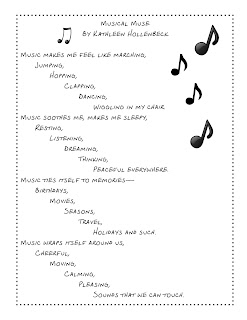 Musical Muse
By Kathleen Hollenbeck
Music makes me feel like marching,
Jumping,
Hopping,
Clapping,
Dancing,
Wiggling in my chair.
Music soothes me, makes me sleepy,
Resting,
Listening,
Dreaming,
Thinking,
Peaceful everywhere.
Music ties itself to memories—
Birthdays,
Movies,
Seasons,
Travel,
Holidays and such.
Music wraps itself around us,
Cheerful,
Moving,
Calming,
Pleasing,
Sounds that we can touch.